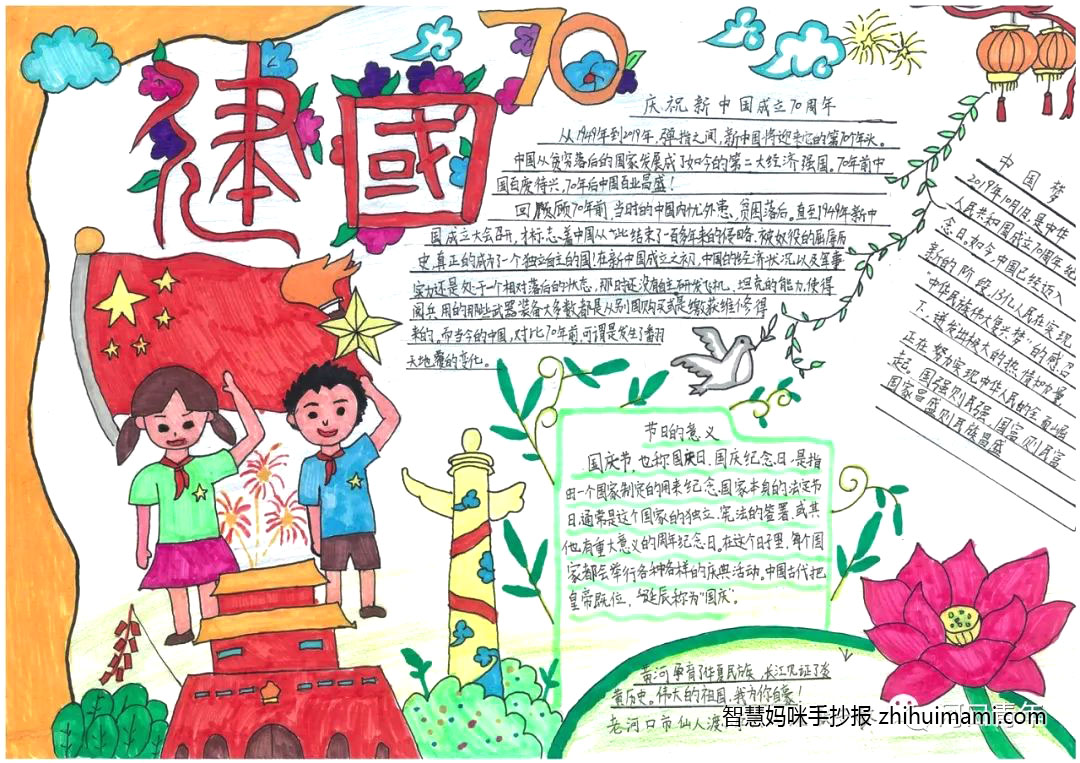 建國70
庆祝新中国成立70周年
从1949年到2019年，弹指之间，新中国将迎来它的第70个年头。
中国从贫穷落后的国家发展成了如今的第二大经济强国。70年前中
国百废待兴，70年后中国百业昌盛！
回顾70年前，当时的中国内忧外患，贫困落后。直至1949年新中
国成立大会召开，才标志着中国从此结束了一百多年来的侵略、被奴役的屈辱历
史真正的成为了一个独立自主的国！在新中国成立之初，中国的经济状况以及军事
实力还是处于一个相对落后的状态，那时还没有自主研发飞机，坦克的能力，使得
阅兵用的那些武器装备大多数都是从别国购买或是缴获维修得
来的。而当今的中国，对比70年前，可谓是发生了翻
天地覆的变化。
中国梦
2019年10月1日，是中华
人民共和国成立70周年纪
念日。如今，中国已经迈入
新的阶段，13亿人民在实现
“中华民族伟大复兴梦”的感召
下，迸发出极大的热情和力量
正在努力实现中华人民的全面崛
起。国强则民强，国富则民富
国家昌盛则民族昌盛
节日的意义
国庆节，也称国庆日、国庆纪念日，是指
由一个国家制定的用来纪念国家本身的法定节
日，通常是这个国家的独立、宪法的签署、或其
他有重大意义的周年纪念日。在这个日子里，每个国
家都会举行各种各样的庆典活动。中国古代把
皇帝即位、诞辰称为“国庆”。
黄河孕育了华夏民族，长江见证了
黄历史。伟大的祖国，我为你自豪！
老河口市仙人渡
智慧妈咪手抄报 zhihuimami.com